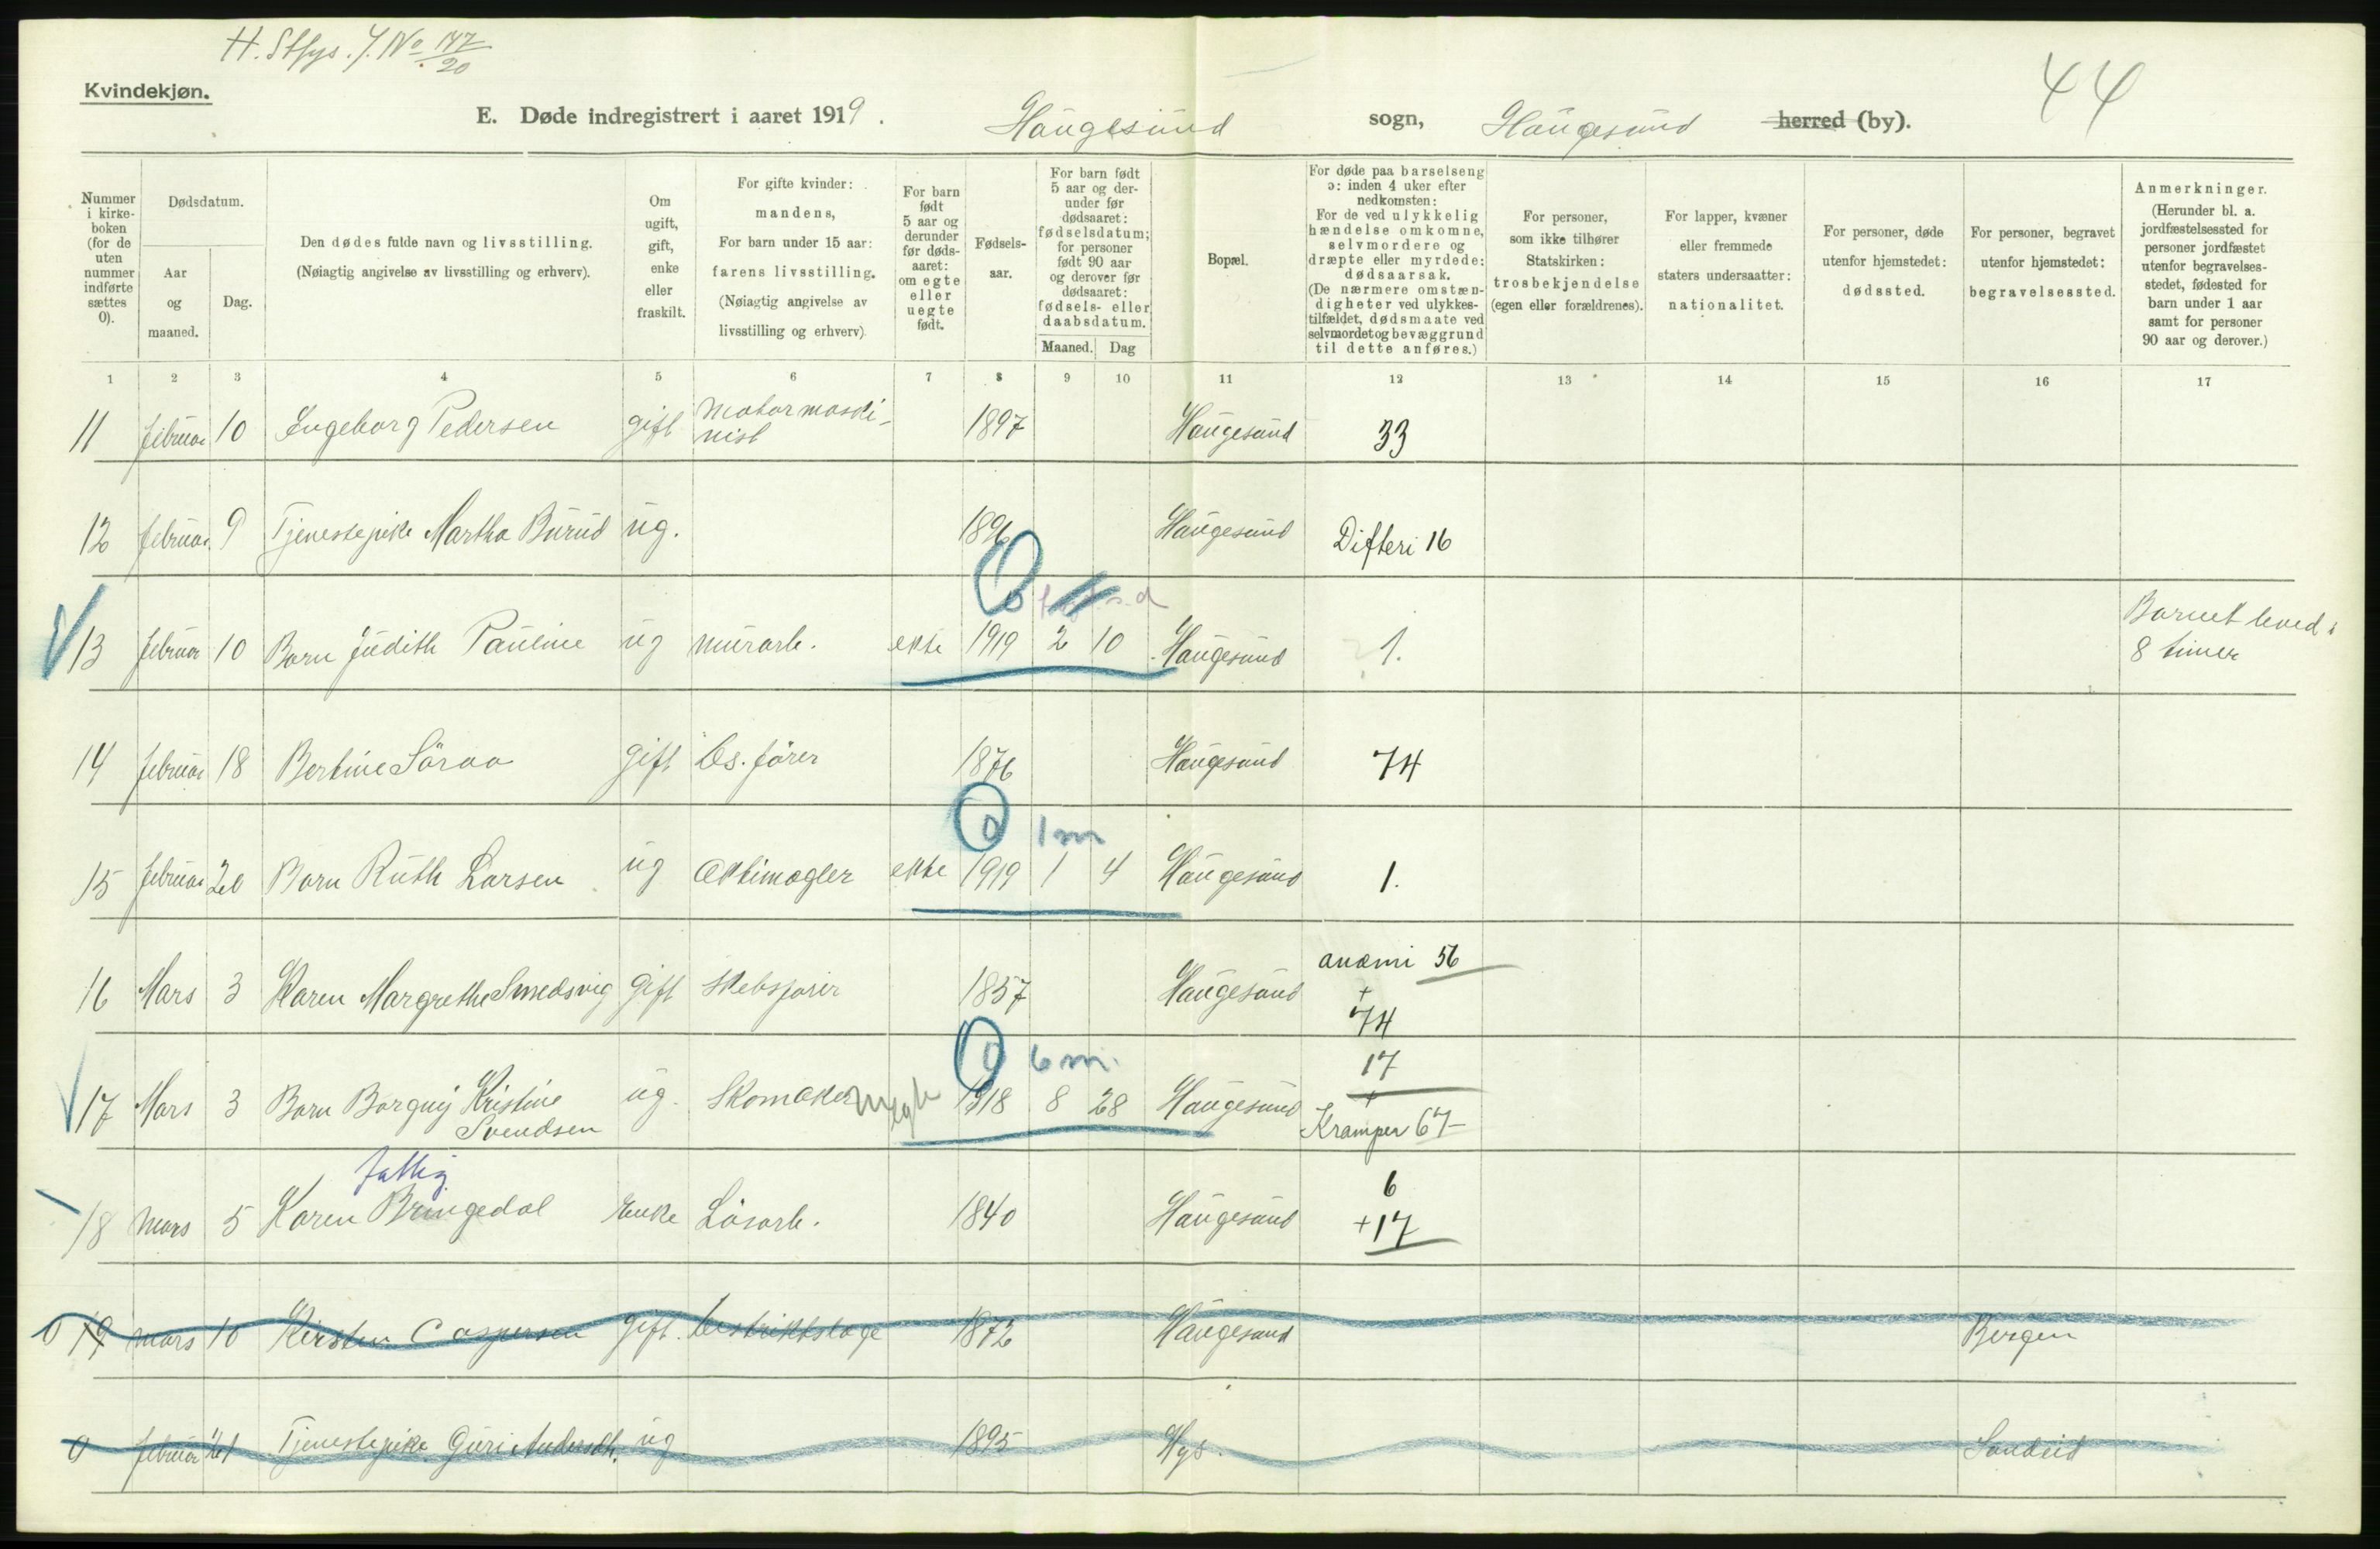 H. Stfys. J. No 147/20
44
Kvindekjøn.
E. Døde indregistrert i aaret 1919. Haugesund sogn, Haugesund herred (by).
Nummer i kirkeboken (for de uten nummer indførte sættes 0).
Dødsdatum.
Aar og maaned.
Dag.
Den dødes fulde navn og livsstilling.
(Nøiagtig angivelse av livsstilling og erhverv).
Om ugift, gift, enke eller fraskilt.
For gifte kvinder: mandens,
For barn under 15 aar: farens livsstilling.
(Nøiagtig angivelse av livsstilling og erhverv)
For barn født 5 aar og derunder før dødsaaret: om egte eller uegte født.
Fødselsaar.
For barn født 5 aar og derunder før dødsaaret: fødselsdatum; for personer født 90 aar og derover før dødsaaret: fødsels- eller daabsdatum.
Maaned. Dag
Bopæl.
For døde paa barselseng ɔ: inden 4 uker efter nedkomsten:
For de ved ulykkelig hændelse omkomne, selvmordere og dræpte eller myrdede: dødsaarsak.
(De nærmere omstændigheter ved ulykkestilfældet, dødsmaate ved selvmordet og bevæggrund til dette anføres.)
For personer, som ikke tilhører Statskirken: trosbekjendelse (egen eller forældrenes).
For lapper, kvæner eller fremmede staters undersaatter: nationalitet.
For personer, døde utenfor hjemstedet: dødssted.
For personer, begravet utenfor hjemstedet: begravelsessted.
Anmerkninger.
(Herunder bl. a. jordfæstelsessted for personer jordfæstet utenfor begravelsesstedet, fødested for barn under 1 aar samt for personer 90 aar og derover.)
1 2 3 4 5 6 7 8 9 10 11 12 13 14 15 16 17
11 februar 10 Ingeborg Pedersen gift Motormaski-nist 1897 Haugesund 33
12 februar 9 Tjenestepike Martha Burud ug. 1896 Haugesund Difteri 16
13 februar 10 Barn Judith Pauline ug murarb. ekte 1919 2 10 Haugesund 1. Barnet leved i 8 timer
14 februar 18 Bertine Søraa gift Ds. fører 1876 Haugesund 74
0 1 m
15 februar 20 Barn Ruth Larsen ug Aktimægler ekte 1919 1 4 Haugesund 1.
16 Mars 3 Karen Margrethe Smedsvig gift Skebsfører 1857 Haugesund anæmi 56 + 74
0 6 m.
17 Mars 3 Barn Borgny Kristine Svendsen ug. Skomaker uegte 1918 8 28 Haugesund 17 + Kramper 67
fattig
18 Mars 5 Karen Bringedal Enke Løsarb. 1840 Haugesund 6 + 17
0 19 mars 10 Kirsten Caspersen gift. Destriktslæge 1872 Haugesund Bergen
0 februar 21 Tjenestepike Guri Andersdt. ug 1895 Hgs. Sandeid